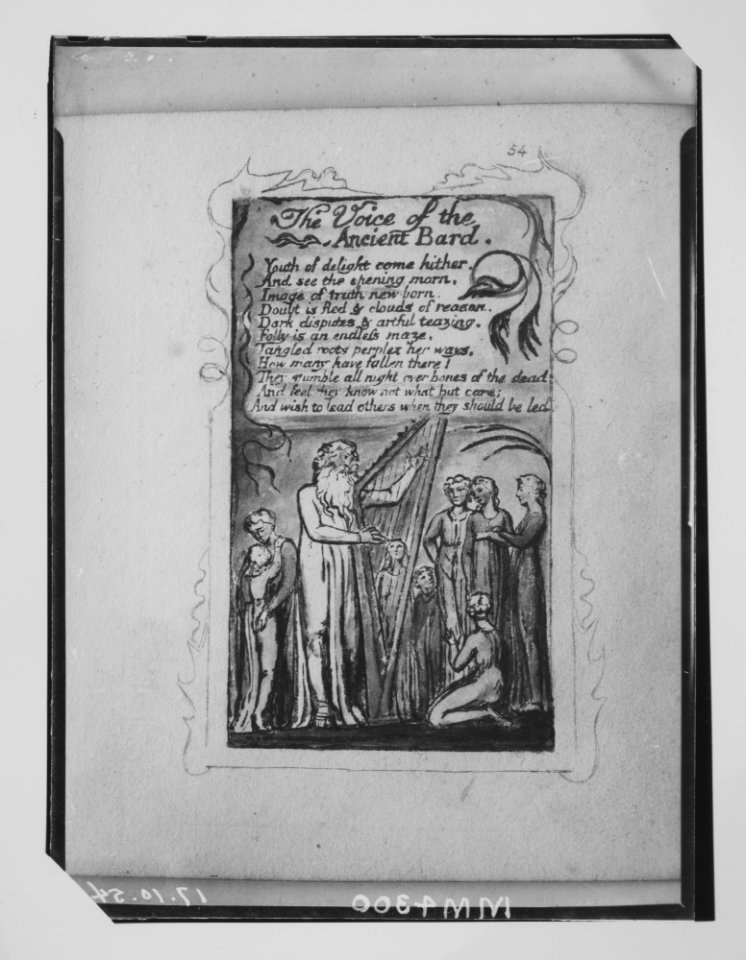 54
The Voice of the
Ancient Bard.
Youth of delight come hither.
And see the opening morn.
Image of truth new born.
Doubt is fled & clouds of reason.
Dark disputes & artful teazing.
Folly is an endless maze.
Tangled roots perplex her ways.
How many have fallen there!
They stumble all night over bones of the dead:
And feel they know not what but care:
And wish to lead others when they should be led
17.10.54
MM4300